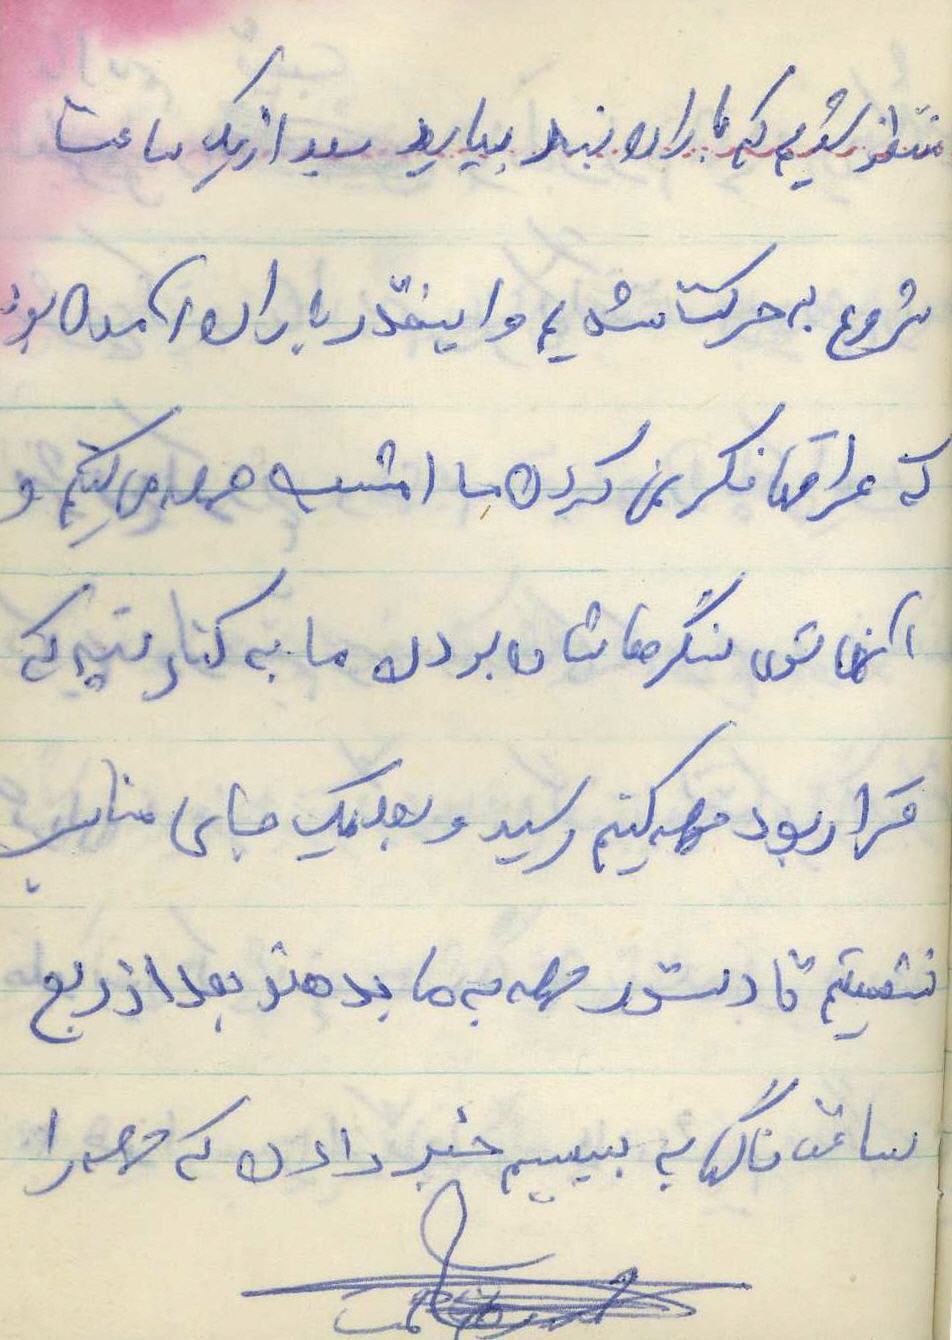 منتظر شدیم که باران بند بیاید بعد از یک ساعت
شروع به حرکت شدیم و اینقدر باران آمده بود
که عراقیها فکر نمی کردن ما امشب حمله می کنیم و
آنها توی سنگرهاشان بودن ما به کنار تپه که
قرار بود حمله کنیم رسید و بعد یک جای مناسب
نشستیم تا دستور حمله به ما بدهند بعد از ربع
ساعت ناگه به بیسیم خبر دادن که حمله را